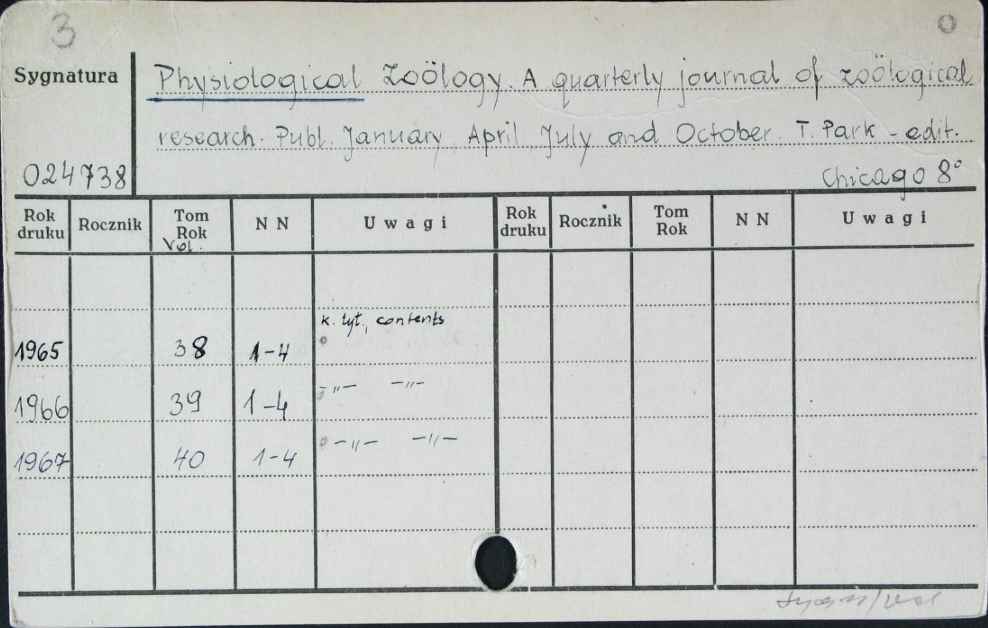 3
Sygnatura
Physiological Zoölogy. A quarterly journal of zoölogical
research. Publ. January, April, July and October. T. Park - edit.
024738
Chicago 8°
Rok druku Rocznik Tom Rok N N Uwagi Rok druku Rocznik Tom Rok N N Uwagi
Vol.
k. tyt., contents
1965 38 1-4
1966 39 1-4 -„- -„-
1967 40 1-4 -„- -„-